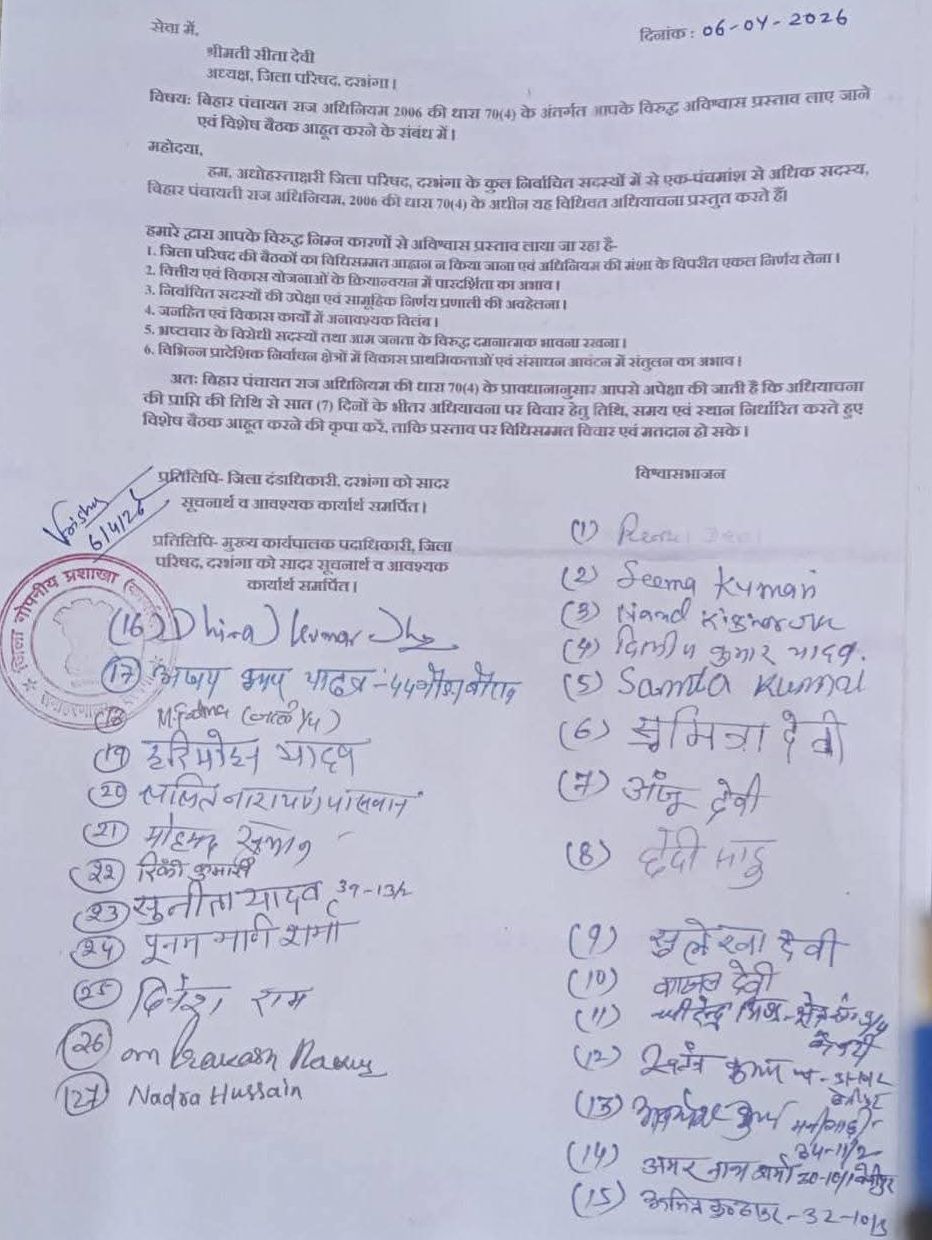 सेवा में,
दिनांक : 06-04-2026
श्रीमती सीता देवी
अध्यक्ष, जिला परिषद, दरभंगा।
विषय: बिहार पंचायत राज अधिनियम 2006 की धारा 70(4) के अंतर्गत आपके विरुद्ध अविश्वास प्रस्ताव लाए जाने
एवं विशेष बैठक आहूत करने के संबंध में।
महोदया,
हम, अधोहस्ताक्षरी जिला परिषद, दरभंगा के कुल निर्वाचित सदस्यों में से एक-पंचमांश से अधिक सदस्य,
बिहार पंचायती राज अधिनियम, 2006 की धारा 70(4) के अधीन यह विधिवत अधियाचना प्रस्तुत करते हैं।
हमारे द्वारा आपके विरुद्ध निम्न कारणों से अविश्वास प्रस्ताव लाया जा रहा है-
1. जिला परिषद की बैठकों का विधिसम्मत आह्वान न किया जाना एवं अधिनियम की मंशा के विपरीत एकल निर्णय लेना।
2. वित्तीय एवं विकास योजनाओं के क्रियान्वयन में पारदर्शिता का अभाव।
3. निर्वाचित सदस्यों की उपेक्षा एवं सामूहिक निर्णय प्रणाली की अवहेलना।
4. जनहित एवं विकास कार्यों में अनावश्यक विलंब।
5. भ्रष्टाचार के विरोधी सदस्यों तथा आम जनता के विरुद्ध दमनात्मक भावना रखना।
6. विभिन्न प्रादेशिक निर्वाचन क्षेत्रों में विकास प्राथमिकताओं एवं संसाधन आवंटन में संतुलन का अभाव।
अतः बिहार पंचायत राज अधिनियम की धारा 70(4) के प्रावधानानुसार आपसे अपेक्षा की जाती है कि अधियाचना
की प्राप्ति की तिथि से सात (7) दिनों के भीतर अधियाचना पर विचार हेतु तिथि, समय एवं स्थान निर्धारित करते हुए
विशेष बैठक आहूत करने की कृपा करें, ताकि प्रस्ताव पर विधिसम्मत विचार एवं मतदान हो सके।
प्रतिलिपि- जिला दंडाधिकारी, दरभंगा को सादर
सूचनार्थ व आवश्यक कार्यार्थ समर्पित।
6/4/26
प्रतिलिपि- मुख्य कार्यपालक पदाधिकारी, जिला
परिषद, दरभंगा को सादर सूचनार्थ व आवश्यक
कार्यार्थ समर्पित।
जिला गोपनीय प्रशाखा
विश्वासभाजन
(1)
(2) Seema Kumari
(3) Nand Kishor
(4) दिलीप कुमार यादव
(5) Kumari
(6) सुमित्रा देवी
(7) अंजू देवी
(8)
(9) सुलेखा देवी
(10) काजल देवी
(11)
(12)
(13)
(14) अमर नाथ शर्मा 30-10/1
(15) 32-10/3
(16) Kumar Jha
(17)
(18) M. Fatma
(19) यादव
(20) ललित नारायण पासवान
(21) मोहमद
(22) रिंकी कुमारी
(23) सुनीता यादव 39-13/2
(24) पूनम शर्मा
(25) दिनेश राम
(26) Om Prakash
(27) Nadra Hussain